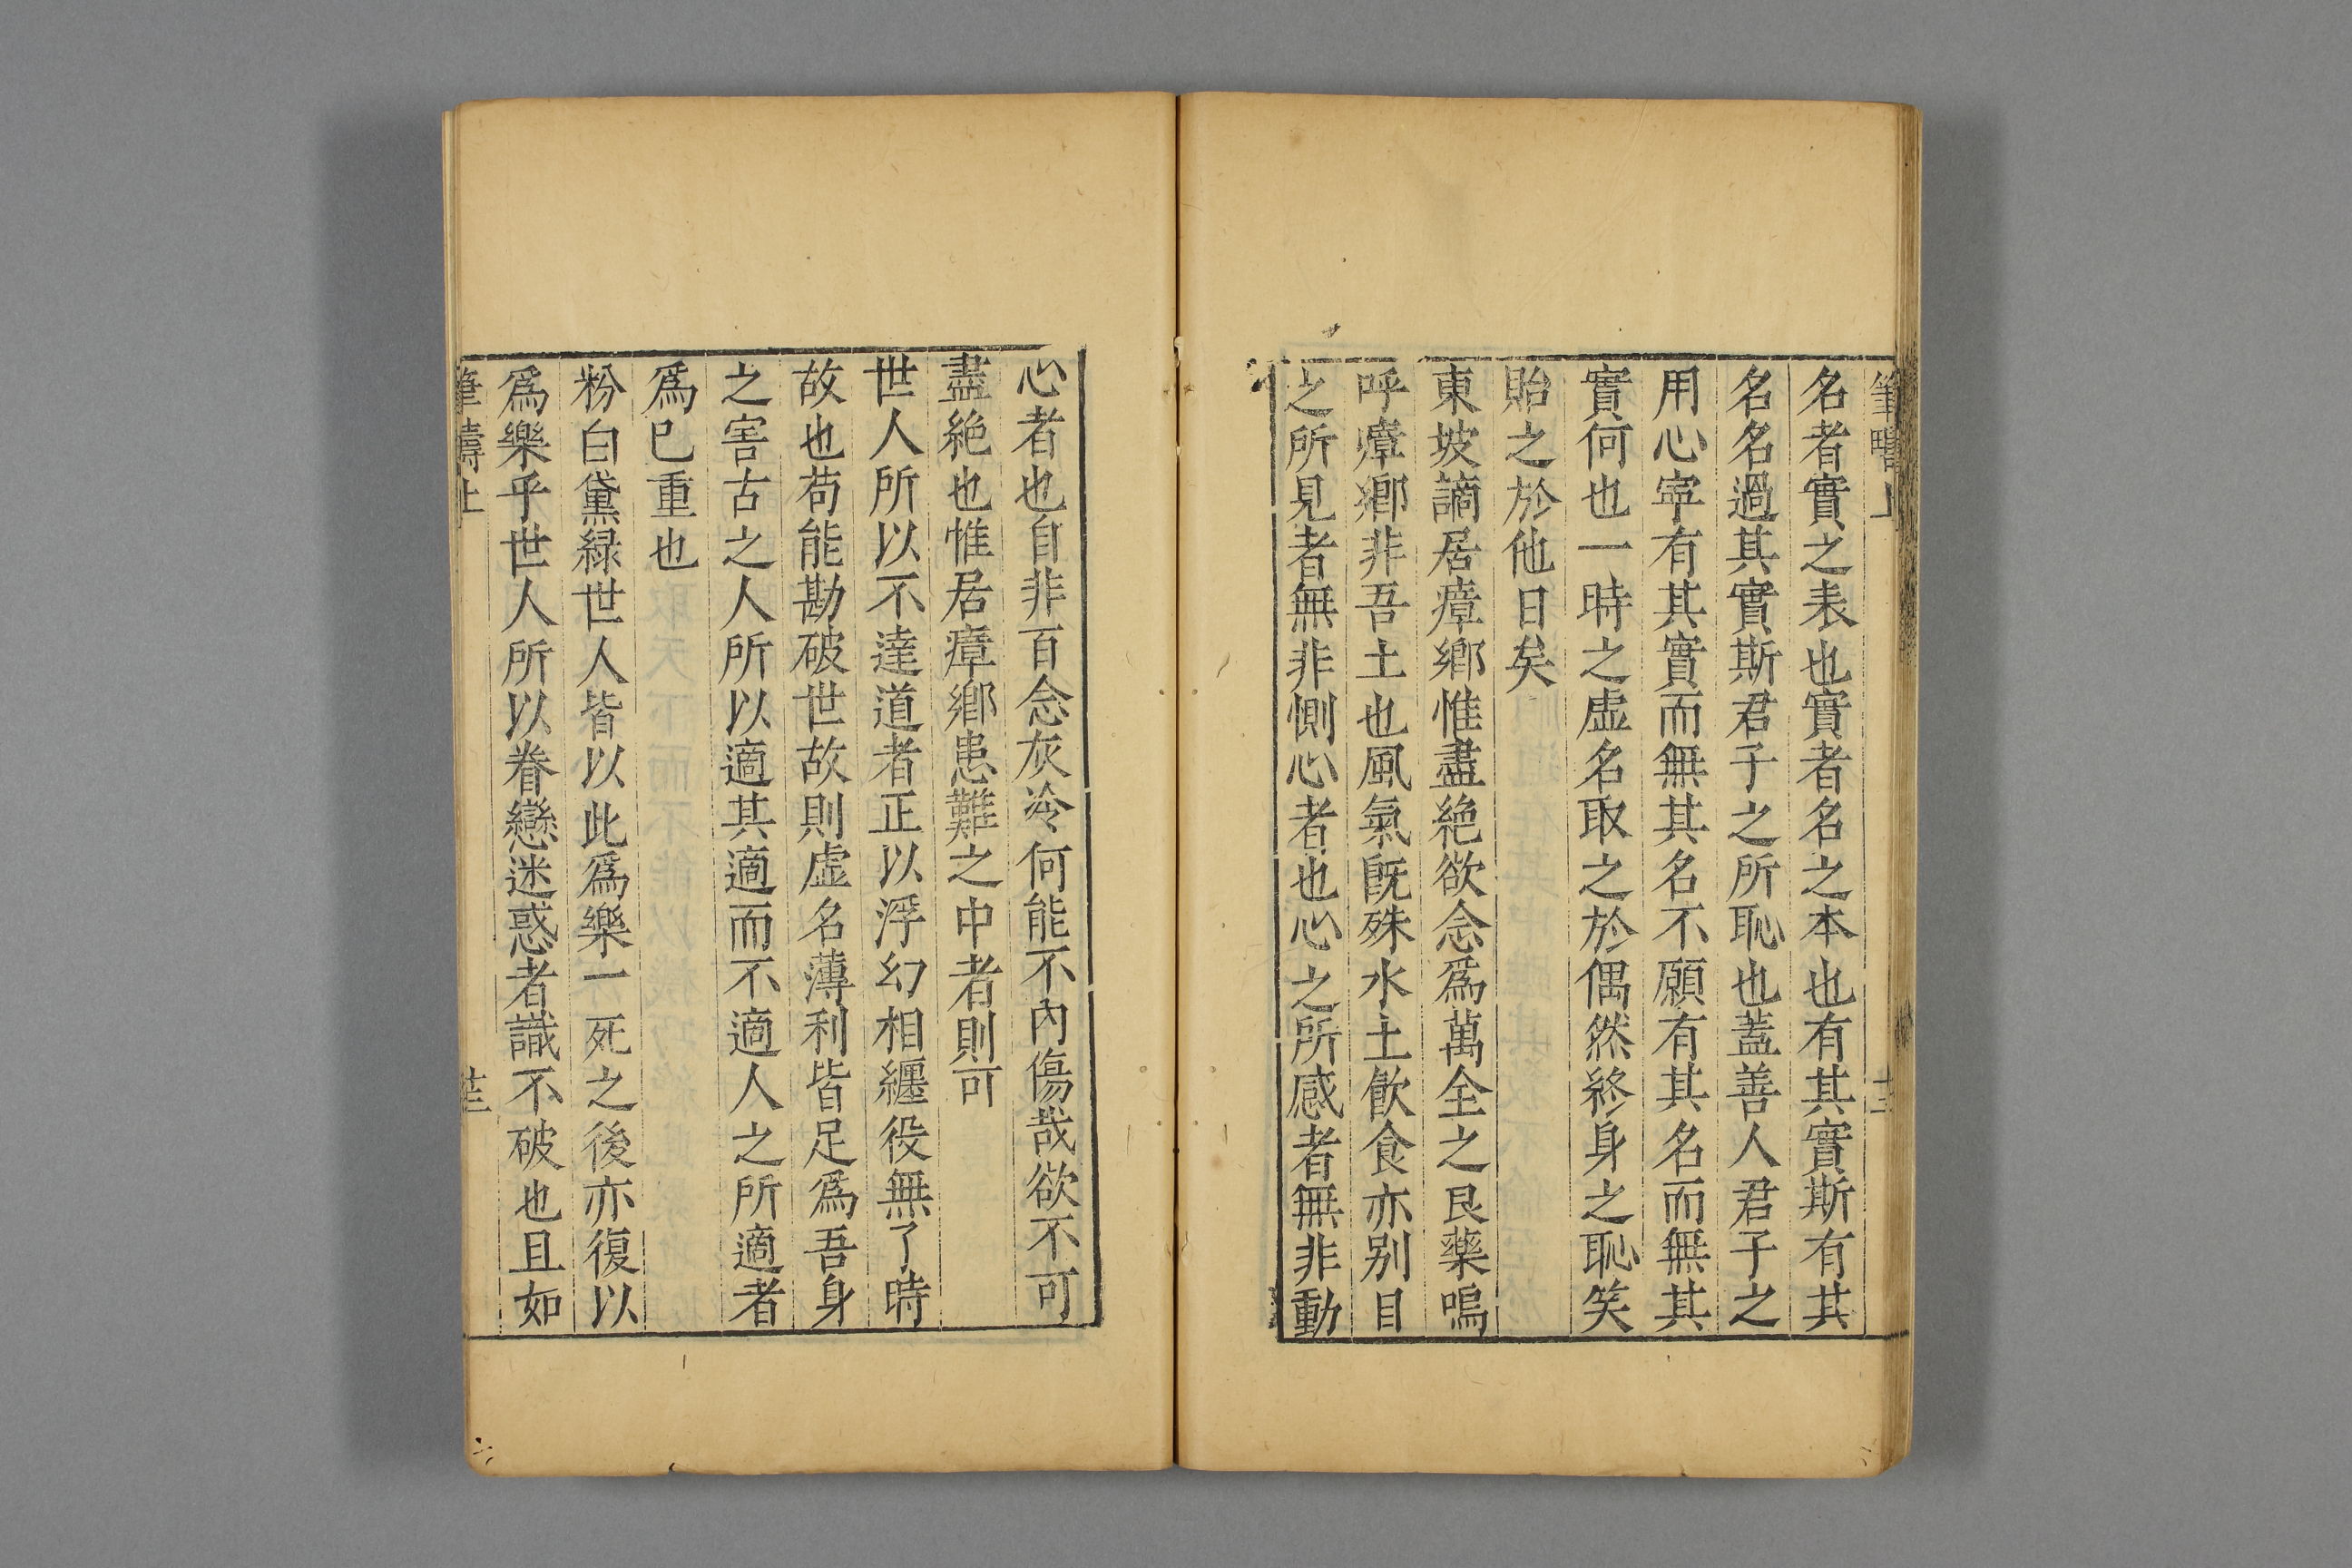 名者實之表也實者名之本也有其實斯有其
名名過其實斯君子之所恥也蓋善人君子之
用心寧有其實而無其名不願有其名而無其
實何也一時之虛名取之於偶然終身之恥笑
貽之於他日矣
東坡謫居瘴鄉惟盡絶欲念爲萬全之良藥嗚
呼瘴鄉非吾土也風氣既殊水土飲食亦别目
之所見者無非惻心者也心之所感者無非動
心者也自非百念灰冷何能不內傷哉欲不可
盡絶也惟居瘴鄉患難之中者則可
世人所以不達道者正以浮幻相纏役無了時
故也苟能勘破世故則虛名薄利皆足爲吾身
之害古之人所以適其適而不適人之所適者
爲已重也
粉白黛緑世人皆以此爲樂一死之後亦復以
爲樂乎世人所以眷戀迷惑者識不破也且如
筆疇上